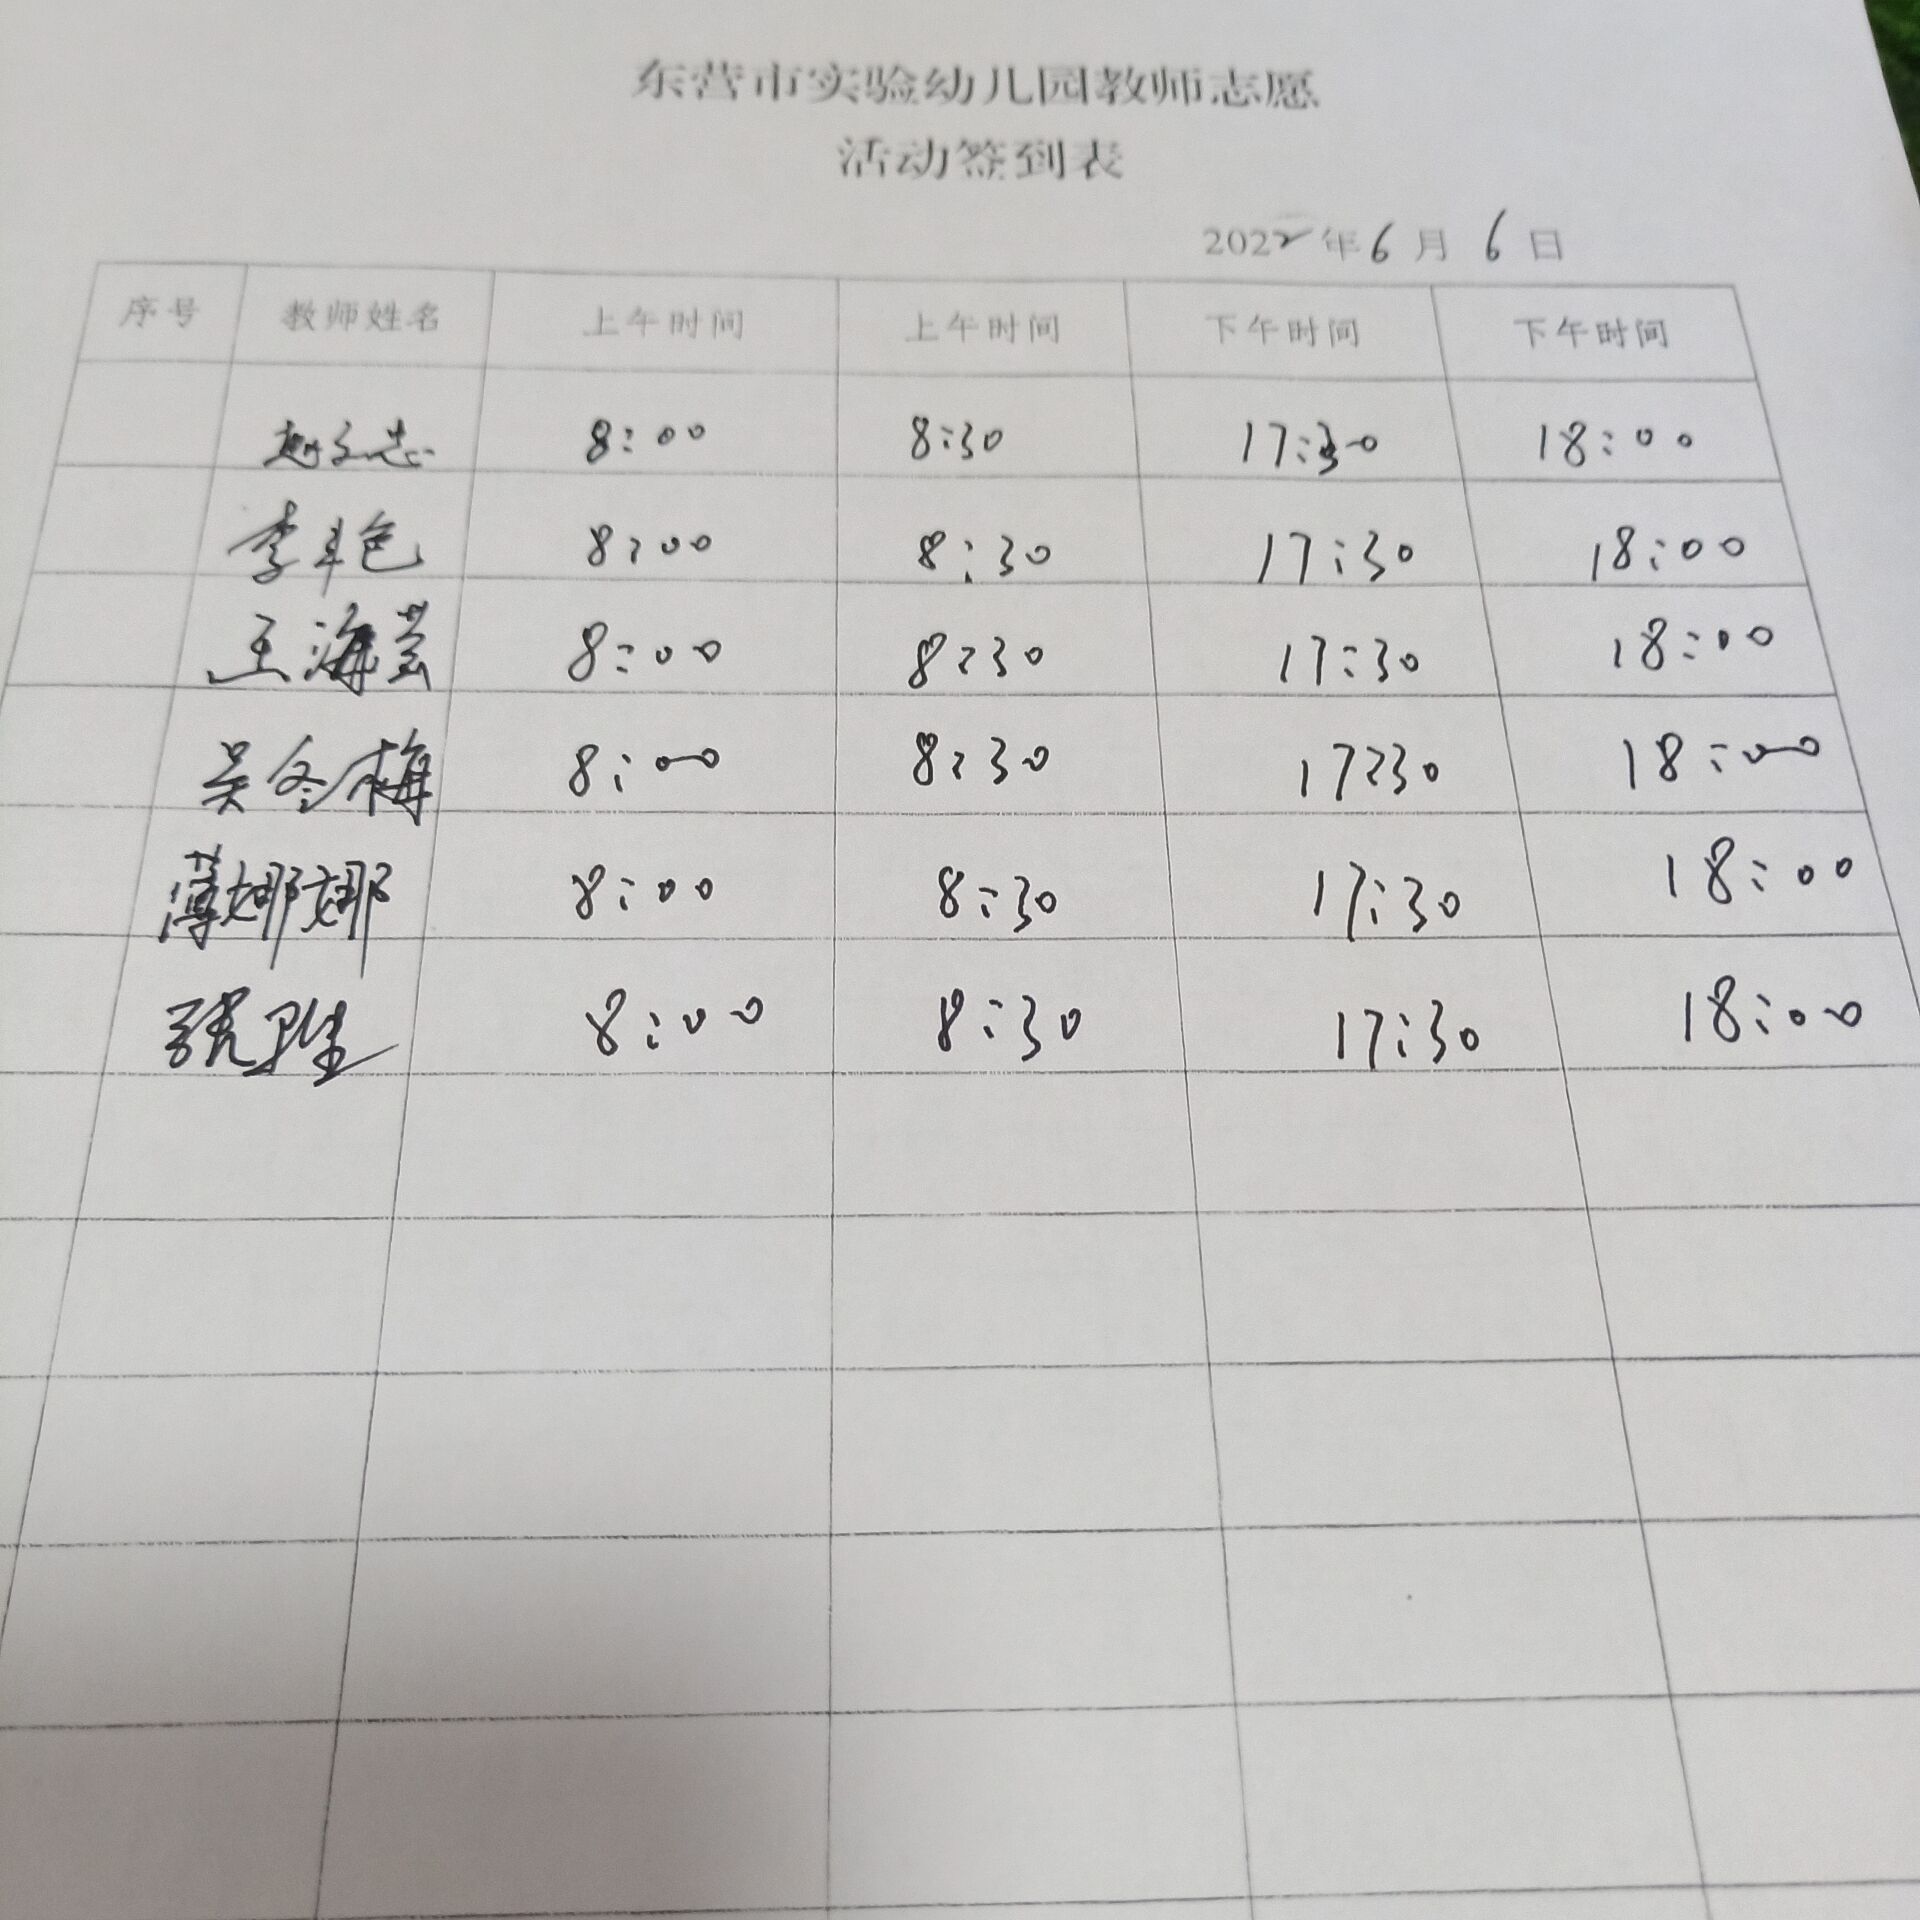 东营市实验幼儿园教师志愿
活动签到表
2022年6月6日
序号 教师姓名 上午时间 上午时间 下午时间 下午时间
8:00 8:30 17:30 18:00
李 艳 8:00 8:30 17:30 18:00
王海芸 8:00 8:30 17:30 18:00
吴冬梅 8:00 8:30 17:30 18:00
薄娜娜 8:00 8:30 17:30 18:00
张 8:00 8:30 17:30 18:00